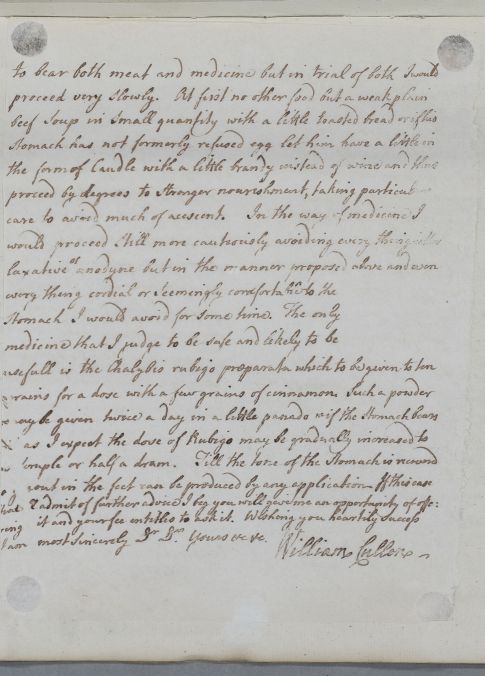 to bear both meat and medicine but in trial of both I would
proceed very slowly. At first no other food but a weak plain
beef soup in small quantity with a little toasted bread or if his
Stomach has not formerly refused egg let him have a little in
the form of Caudle with a little brandy instead of wine and thus
proceed by degrees to Stronger nourishment, taking particular
care to avoid much of acescent. In the way of medecine I
would proceed still more cautiously avoiding every thing either
laxative or anodyne but in the manner proposed above and even
every thing cordial or seemingly comfortable to the
Stomach I would avoid for some time. The only
medicine that I judge to be safe and likely to be
usefull is the Chalybis rubigo præparata which to be given to ten
grains for a dose with a few grains of cinnamon. Such a powder
may be given twice a day in a little panado & if the Stomach bears
it as I expect the dose of Rubigo may be gradually increased to
a Scruple or half a dram. Till the tone of the Stomach is recoverd
no gout in the feet can be produced by any application. If this case
admit of further advice I beg you will give me an opportunity of offe:
ring it and your fee entitles to ask it. Wishing you heartily success
I am most sincerely Dr Sir Yours &c &c.
William Cullen